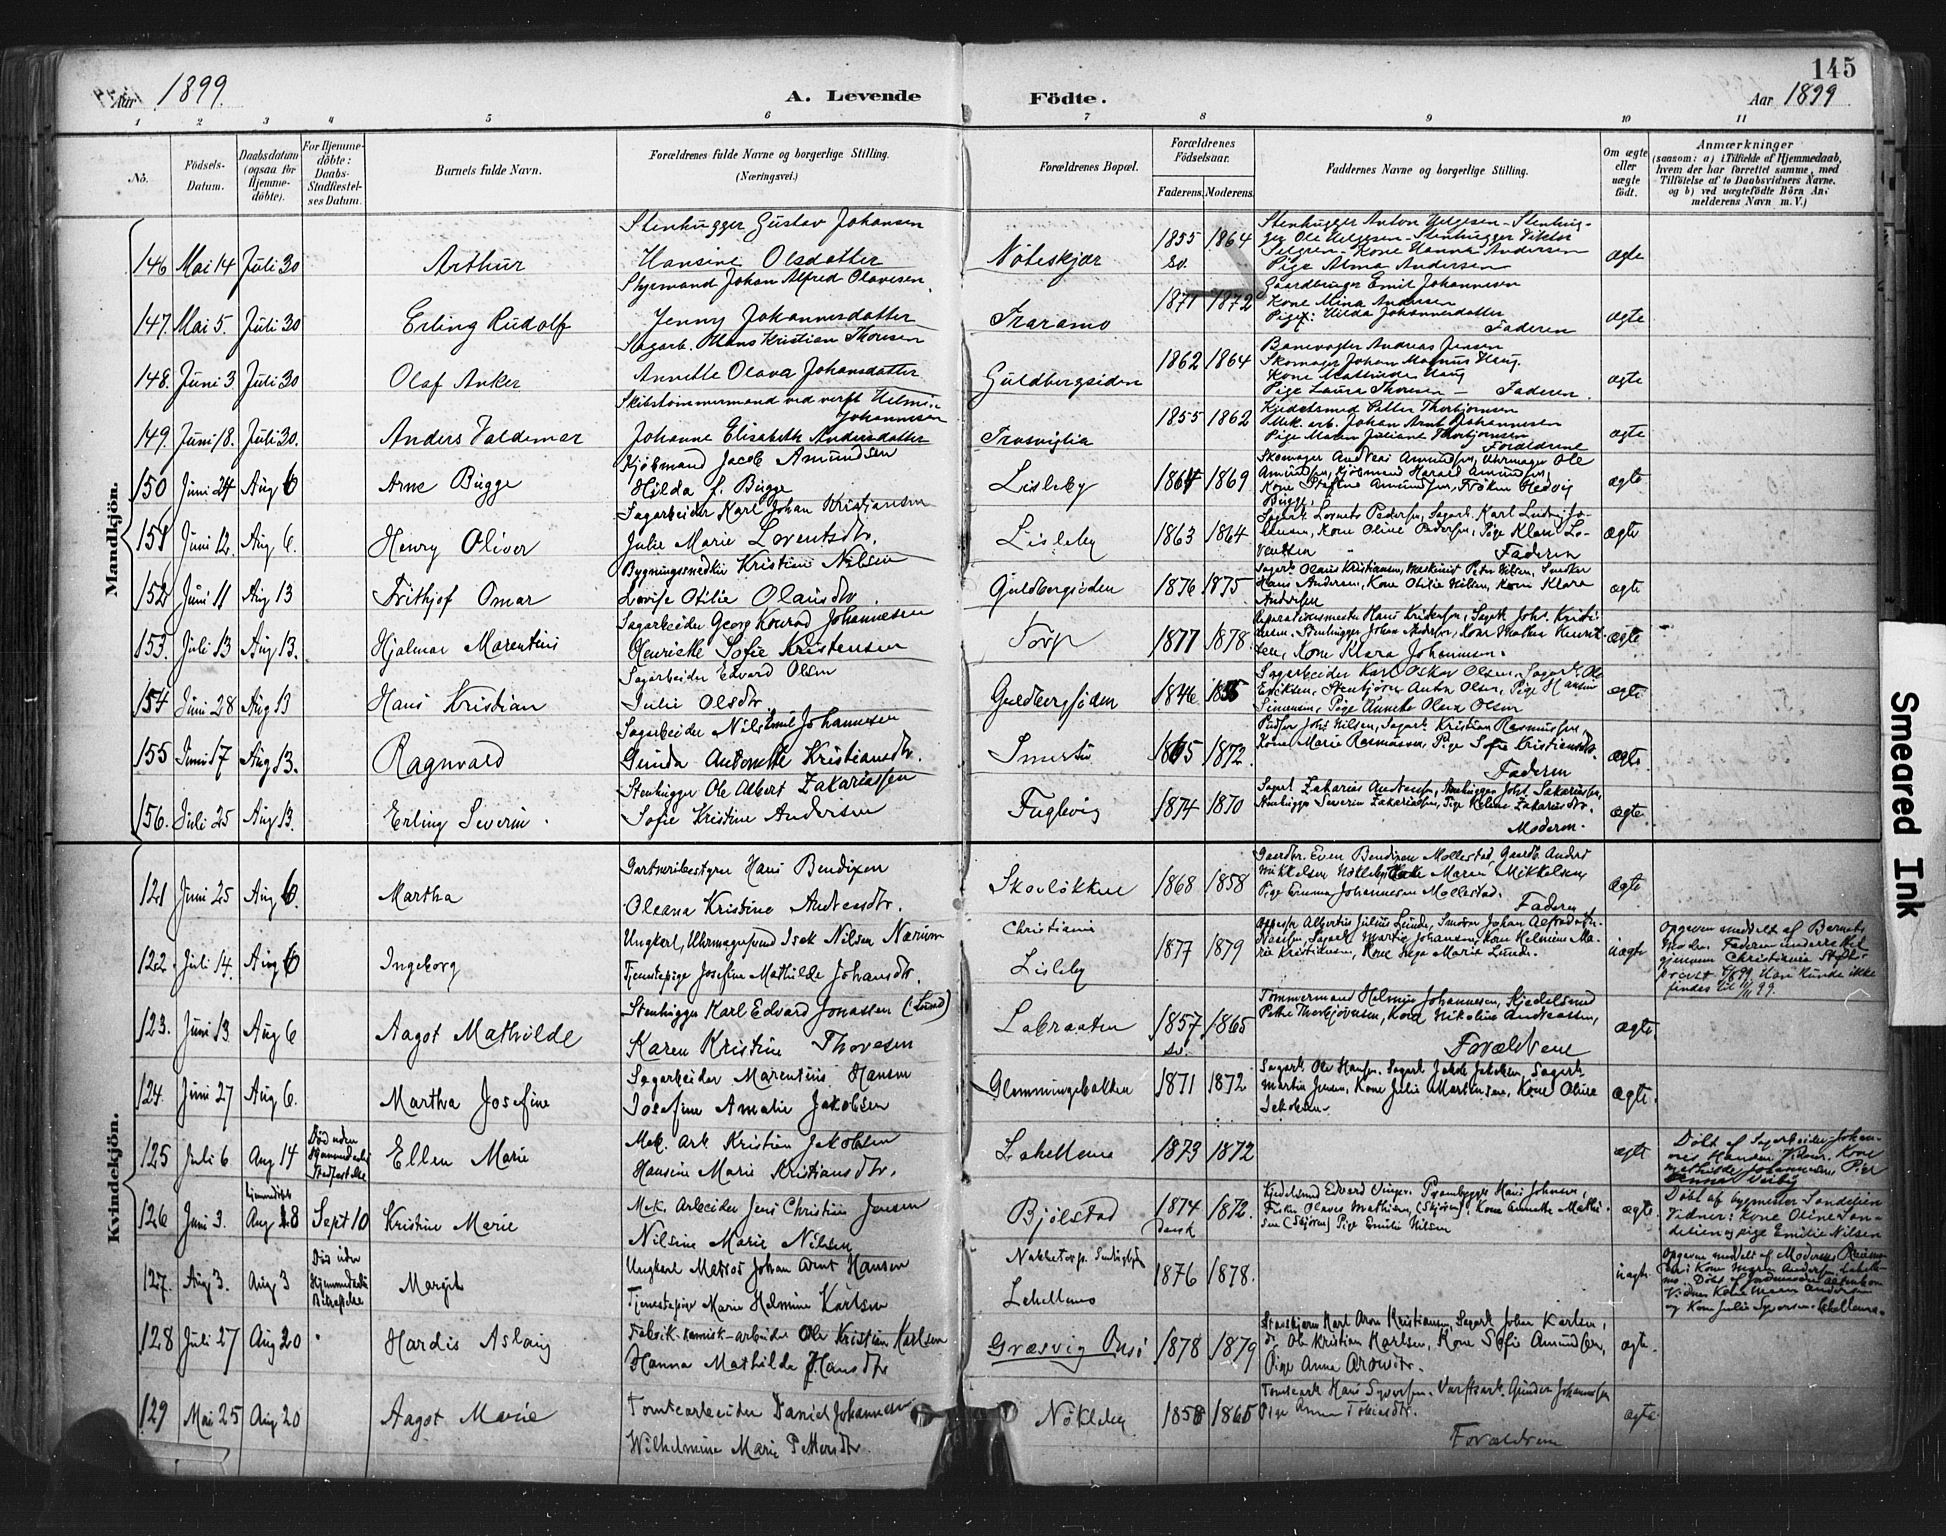 145
Aar 1899.
A. Levende Födte.
Aar 1899
1 2 3 4 5 6 7 8 9 10 11
No.
Födsels-Datum.
Daabsdatum (ogsaa for Hjemme-döbte).
For Hjemme-döbte: Daabs-Stadfæstel-ses Datum.
Barnets fulde Navn.
Forældrenes fulde Navne og borgerlige Stilling. (Næringsvei.)
Forældrenes Bopæl.
Forældrenes Födselsaar.
Faderens. Moderens.
Faddernes Navne og borgerlige Stilling.
Om ægte eller uægte födt.
Anmærkninger (saasom: a) i Tilfælde af Hjemmedaab, hvem der har forrettet samme, med Tilföielse af to Daabsvidners Navne, og b) ved uægtefödte Börn An-melderens Navn m. V.)
Mandkjön.
146 Mai 14 Juli 30 Arthur
Stenhugger Gustav Johansen
Hansine Olsdatter
Nöteskjær 1855 sv. 1864
Stenhugger Anton Helgesen - Stenhug-
ger Ole Helgesen - Stenhugger Viktor
Kone Hanna Andersen
Pige Alma Andersen
ægte
147. Mai 5. Juli 30 Erling Rudolf
Styrmand Johan Alfred Olavesen.
Jenny Johannesdatter
Traramo 1871 1872
Gaardbruger Emil Johannesen
Kone Mina Andersen
Pige: Hilda Johannesdatter
Faderen
ægte
148. Juni 3. Juli 30 Olaf Anker
Sagarb. Hans Kristian Thoresen
Annette Olava Johansdatter
Guldbergsiden 1862 1864
Banevogter Andreas Jensen
Skomager Johan Magnus Haug
Kone Mathilde Haug
Pige Laura Thoresen - Faderen.
ægte
149. Juni 18. Juli 30. Anders Valdemar
Skibstømmermand ved verft Helmer
Johannesen
Johanne Elisabeth Andersdatter
Trosviglia 1855 1862
Kjedelsmed Petter Thorbjørnsen
Mek. arb. Johan Arnt Johannesen
Pige Maren Juliane Thorbjørnsen
Forældrene
ægte
150 Juni 24 Aug 6 Arne Bugge
Kjöbmand Jacob Amundsen
Hilda f. Bugge
Lisleby 1864 1869
Skomager Andreas Amundsen, Uhrmager Ole
Amundsen, Kjöbmand Harald Amundsen,
Kone Amundsen, Fröken Hedvig
Bugge.
ægte
151 Juni 12. Aug 6. Henry Oliver
Sagarbeider Karl Johan Kristiansen
Julie Marie Lorentsdtr.
Lisleby 1863 1864
Sagarb. Lorents Pedersen, Sagarb. Karl Ludvig Jo-
hansen, Kone Oline Pedersen, Pige Klara Lo-
rentsen
Faderen
ægte
152 Juni 11 Aug 13 Frithjof Omar
Bygningssnedker Kristian Nilsen
Lovise Otilie Olausdtr.
Guldbergsiden 1876 1875
Sagarb. Olaus Kristiansen, Maskinist Peter Nilsen, Snedker
Hans Andersen, Kone Otilie Nilsen, Kone Klara
Andersen
ægte
153. Juli 13 Aug 13. Hjalmar Marentius
Sagarbeider Georg Konrad Johannesen
Henriette Sofie Kristensen
Torp 1877 1878.
Kone Klara Johannesen.
ægte
154 Juni 28 Aug 13 Hans Kristian
Sagarbeider Edvard Olsen
Julie Olsdtr.
Guldbergsiden 1846
Sagarbeider Karl Oskar Olsen, Sagarb. Ole
Eriksen, Anton Olsen, Pige Hansine
Simensen, Pige Annette Olava Olsen
ægte
155 Juni 17 Aug 13. Ragnvald
Sagarbeider Nils Emil Johannesen
Gunda Antonette Kristiansdtr.
Smertu 1865 1872.
Johs. Nilsen, Sagarb. Kristian Rasmussen
Kone Marie Rasmussen, Pige Sofie Kristiansdtr.
Faderen
ægte.
156. Juli 25 Aug 13. Erling Severin.
Stenhugger Ole Albert Zakariassen
Sofie Kristine Andersen
Fuglevig 1874 1870
Sagarb. Zakarias Andersen, Stenhugger Johs. Zakariassen,
Stenhugger Severin Zakariassen, Pige Zakariasdtr.
Moderen.
ægte.
Kvindekjön.
121 Juni 25 Aug 6. Martha
Hans Bendixen
Oleana Kristine Andersdtr.
Skovlökken 1868 1858
Gaardbr. Even Bendixen Mollestad, Gaardb. Anders
Mikkelsen Nökleby, Kone Maren Mikkelsen,
Pige Emma Johannesen Mollestad.
Faderen
ægte
122. Juli 14. Aug 6 Ingeborg
Ungkarl, Uhrmagersvend Isak Nilsen Nærum
Tjenestepige Josefine Mathilde Johansdtr.
Christiania
Lisleby 1877 1879
Albertin Julius Lunde, Johan Alfred
Sagarb. Martin Johansen, Kone Helmine Ma-
rie Kristiansen, Kone Marie Lunde.
uægte
Opgaven meddelt af Barnets
Moder. Faderen underrettet
gjennem Christiania
Han kunde ikke
findes
123. Juni 13. Aug 6 Aagot Mathilde
Stenhugger Karl Edvard Jonassen (Lund)
Karen Kristine Thoresen
Labraaten 1857 sv. 1865
Tömmermand Helmer Johannesen, Kjedelsmed
Petter Thorbjørnsen, Kone Nikoline Andreassen,
Forældrene
ægte.
124. Juni 27 Aug 6. Martha Josefine
Sagarbeider Marentius Hansen
Josefine Amalie Jakobsen
Glemmingebakken 1871 1872
Sagarb. Ole Hansen, Sagarb. Jakob Jakobsen, Sagarb.
Martin Jensen, Kone Julie Martinsen, Kone Oline
Jakobsen.
ægte.
125 Juli 6 Aug 14
Död uden
Hjemmedaabs
Stadfæstelse
Ellen Marie
Mek. Arb. Kristian Jakobsen
Hansine Marie Kristiansdtr.
Lahellemo 1873 1872
ægte
Döbt af Sagarbeider Johan-
nes Hansen. Vidner: Kone
Mathilde Johannesen, Pige
Anna Visby
126 Juni 3.
hjemmedöbt
Aug 18 Sept 10 Kristine Marie
Mek. Arbeider Jens Christian Jensen
Nilsine Marie Nilsen
Bjölstad 1874 Dansk 1872.
Kjedelsmed Edvard Unger.
Fisker Olaves Mathisen (Skjören), Kone Annette Mathi-
sen (Skjören) Pige Emilie Nilsen
ægte.
Döbt af bygmester
Vidner: Kone Oline
og pige Emilie Nilsen
127. Aug 3. Aug 3
Död uden
Hjemmedaabs
Bekræftelse
Margit
Ungkarl Matros Johan Arnt Hansen
Tjenestepige Marie Helmine Karlsen
Nabbetorp
Lahellemo 1876 1878.
uægte
Opgaven meddelt af Moderens
Kone Maren Andersen
Döbt af Jordmoder
Vidner Kone Maren Andersen
og Kone Julie Syversen, Lahellemo.
128 Juli 27 Aug 20 Hardis Aslaug
Fabrik-kemisk-arbeider Ole Kristian Karlsen
Hanna Mathilde Hansdtr
Græsvig Onsö 1878 1879
Karl Aron Kristiansen, Sagarb. Johan Karlsen,
do. Ole Kristian Karlsen, Kone Sofie Amundsen,
Pige Anna Aronsdtr.
ægte.
129 Mai 25 Aug 20 Aagot Marie
Tomtearbeider Daniel Johannesen
Wilhelmine Marie Pettersdtr.
Nökleby 1858 1865
Tomtearb. Hans Syversen. Verftsarb. Gunder Johannesen
Pige Anna Tobiasdtr.
Forældrene
ægte.
Smeared Ink